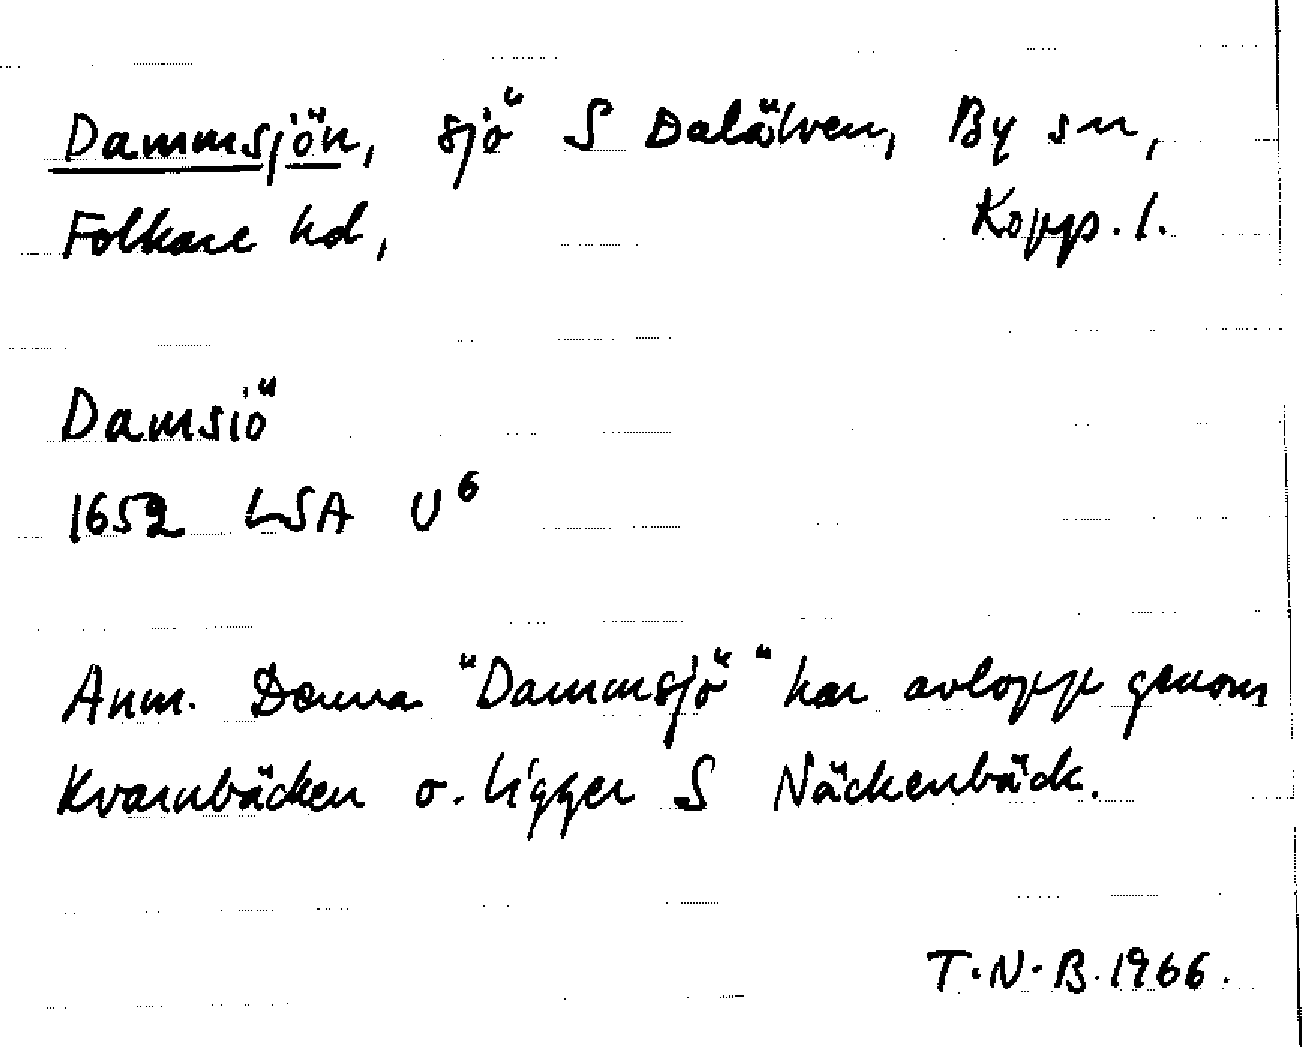 Dammsjön, sjö S Dalälven, By sn,
Folkare hd, Kopp. l.
Damsiö
1652 LSA U⁶
Anm. Denna "Dammsjö" har avlopp genom
Kvarnbäcken o. ligger S Näckenbäck.
T.N.B. 1966.